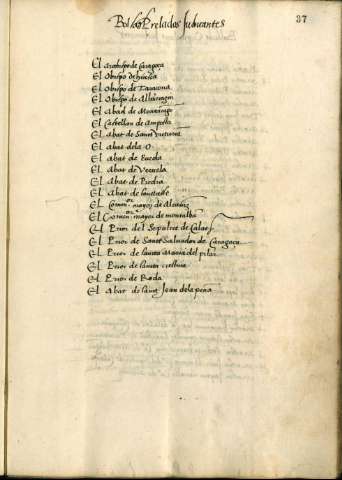 37
Bolsa Prelados Judicantes
El arzobispo de Caragoça
El Obispo de huesca
El Obispo de Taraçona
El Obispo de Albarrazin
El Abad de Montaragon
El Castellan de Amposta
El Abat de Sanct victorian
El Abat dela O
El Abat de Rueda
El Abat de Veruela
El Abat de Piedra
El Abat de Sanctafe
El Comendor mayor de Alcañiz
El Comendor mayor de montalban
El Prior del Sepulcro de Calatd
El Prior de Sanct Salvador de Caragoça
El Prior de Sancta maria del pilar
El Prior de Sancta xpistina
El Prior de Roda
El Abat de Sanct Joan dela peña